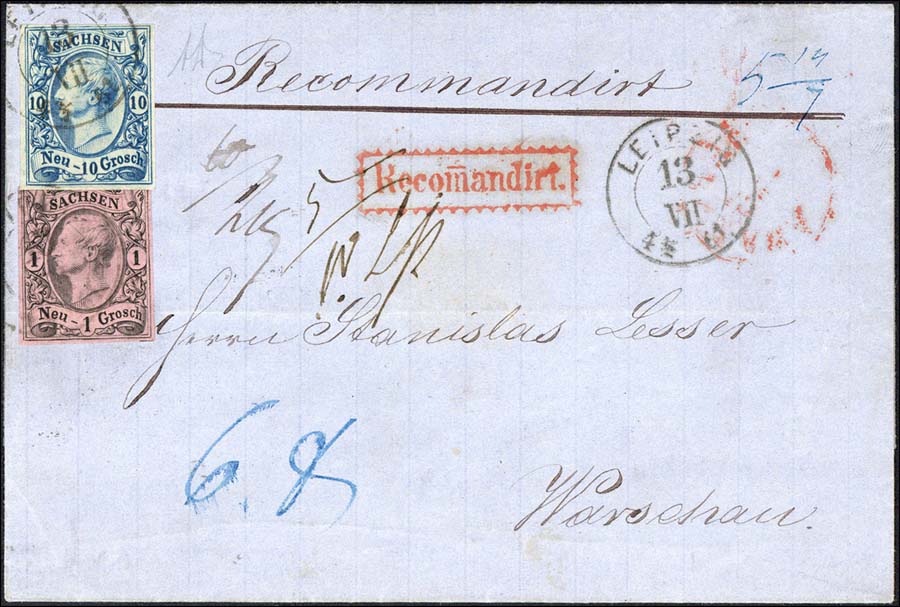 SACHSEN
10 10
Neu - 10 Grosch
SACHSEN
1 1
Neu - 1 Grosch
Recommandirt
5 17/7
Recom̅andirt.
LEIPZIG
13
VII
4½ 61
Herrn Stanislas Lesser
6.
Warschau.